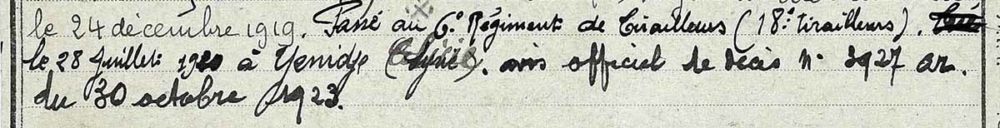 le 24 décembre 1919. Passé au 6e Régiment de Tirailleurs (18e tirailleurs). Tué
le 28 Juillet 1920 à Yenidje (Syrie). avis officiel de décès N° 3927 AR.
du 30 octobre 1923.